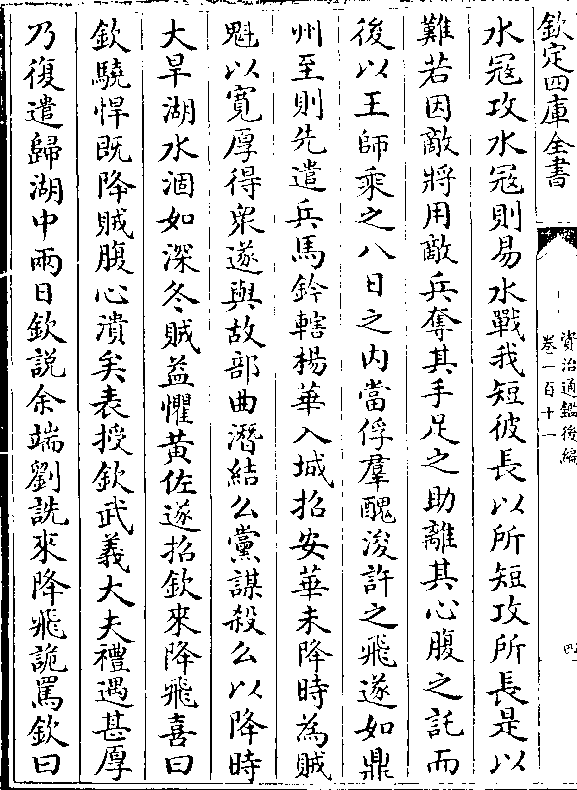 欽定四庫全書
資治通鑑後編
卷一百十一
四
水冦攻水冦則易水戰我短彼長以所短攻所長是以
難若因敵將用敵兵奪其手足之助離其心腹之託而
後以王師乘之八日之内當俘羣醜浚許之飛遂如鼎
州至則先遣兵馬鈐轄楊華入城招安華未降時為賊
魁以寛厚得衆遂與故部曲潛結么黨謀殺么以降時
大旱湖水涸如深冬賊益懼黄佐遂招欽來降飛喜曰
欽驍悍既降賊腹心潰矣表授欽武義大夫禮遇甚厚
乃復遣歸湖中兩日欽說余端劉詵來降飛詭罵欽曰